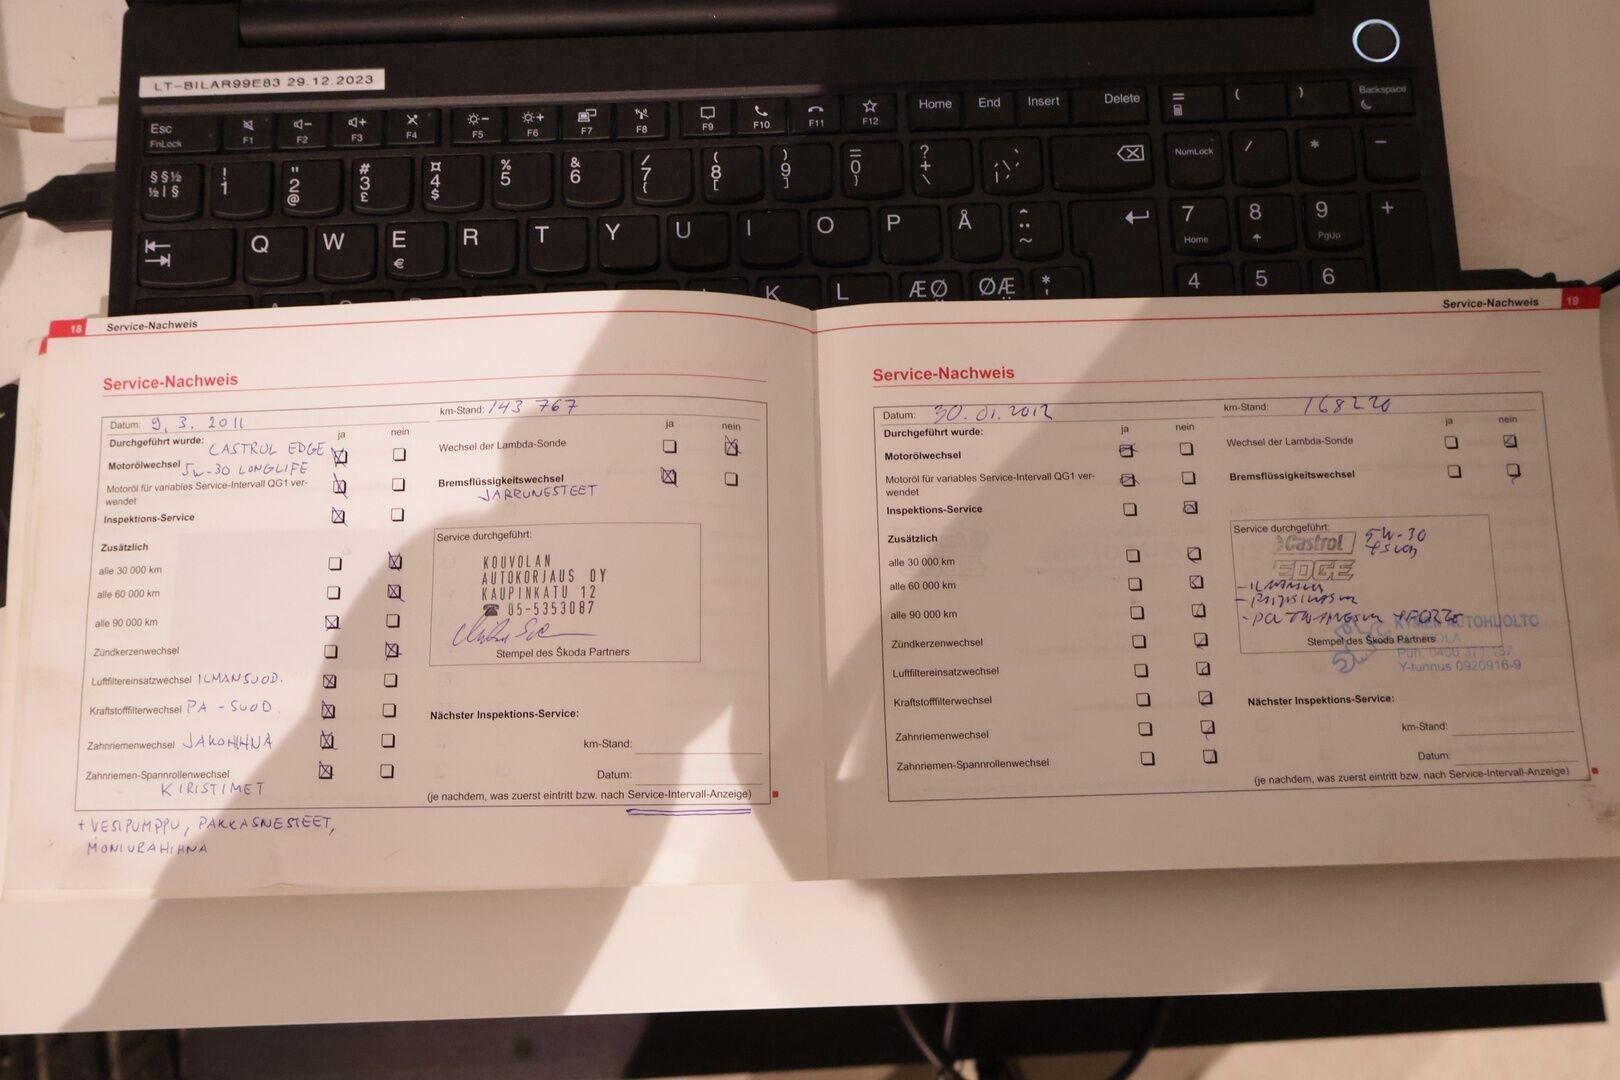 LT-BILAR99E83 29.12.2023
Esc F1 F2 F3 F4 F5 F6 F7 F8 F9 F10 F11 F12 Home End Insert Delete = ( ) Backspace
FnLock
§ § ½ ! 1 " 2 @ # 3 £ ¤ 4 $ % 5 & 6 / 7 { ( 8 [ ) 9 ] = 0 } ? + \ NumLock / * -
½ | §
Q W E € R T Y U I O P Å ¨ ^ ~ 7 Home 8 9 PgUp +
K L ÆØ ØÆ * ' 4 5 6
18 Service-Nachweis
Service-Nachweis
Datum: 9.3.2011
km-Stand: 143 767
Durchgeführt wurde: ja nein
CASTROL EDGE
Motorölwechsel 5W-30 LONGLIFE
Motoröl für variables Service-Intervall QG1 ver-
wendet
Inspektions-Service
Zusätzlich
alle 30 000 km
alle 60 000 km
alle 90 000 km
Zündkerzenwechsel
Luftfiltereinsatzwechsel ILMANSUOD.
Kraftstofffilterwechsel PA-SUOD.
Zahnriemenwechsel JAKOHIHNA
Zahnriemen-Spannrollenwechsel
KIRISTIMET
+ VESIPUMPPU, PAKKASNESTEET,
MONIURAHIHNA
ja nein
Wechsel der Lambda-Sonde
Bremsflüssigkeitswechsel
JARRUNESTEET
Service durchgeführt:
KOUVOLAN
AUTOKORJAUS OY
KAUPINKATU 12
☎ 05-5353087
Stempel des Škoda Partners
Nächster Inspektions-Service:
km-Stand:
Datum:
(je nachdem, was zuerst eintritt bzw. nach Service-Intervall-Anzeige)
Service-Nachweis 19
Service-Nachweis
Datum: 30.01.2012
km-Stand: 168220
Durchgeführt wurde: ja nein
Motorölwechsel
Motoröl für variables Service-Intervall QG1 ver-
wendet
Inspektions-Service
Zusätzlich
alle 30 000 km
alle 60 000 km
alle 90 000 km
Zündkerzenwechsel
Luftfiltereinsatzwechsel
Kraftstofffilterwechsel
Zahnriemenwechsel
Zahnriemen-Spannrollenwechsel
ja nein
Wechsel der Lambda-Sonde
Bremsflüssigkeitswechsel
Service durchgeführt:
Castrol 5W-30
EDGE
KYMEN AUTOHUOLTO
Stempel des Škoda Partners
Puh. 0400 371 137
Y-tunnus 0920916-9
Nächster Inspektions-Service:
km-Stand:
Datum:
(je nachdem, was zuerst eintritt bzw. nach Service-Intervall-Anzeige)